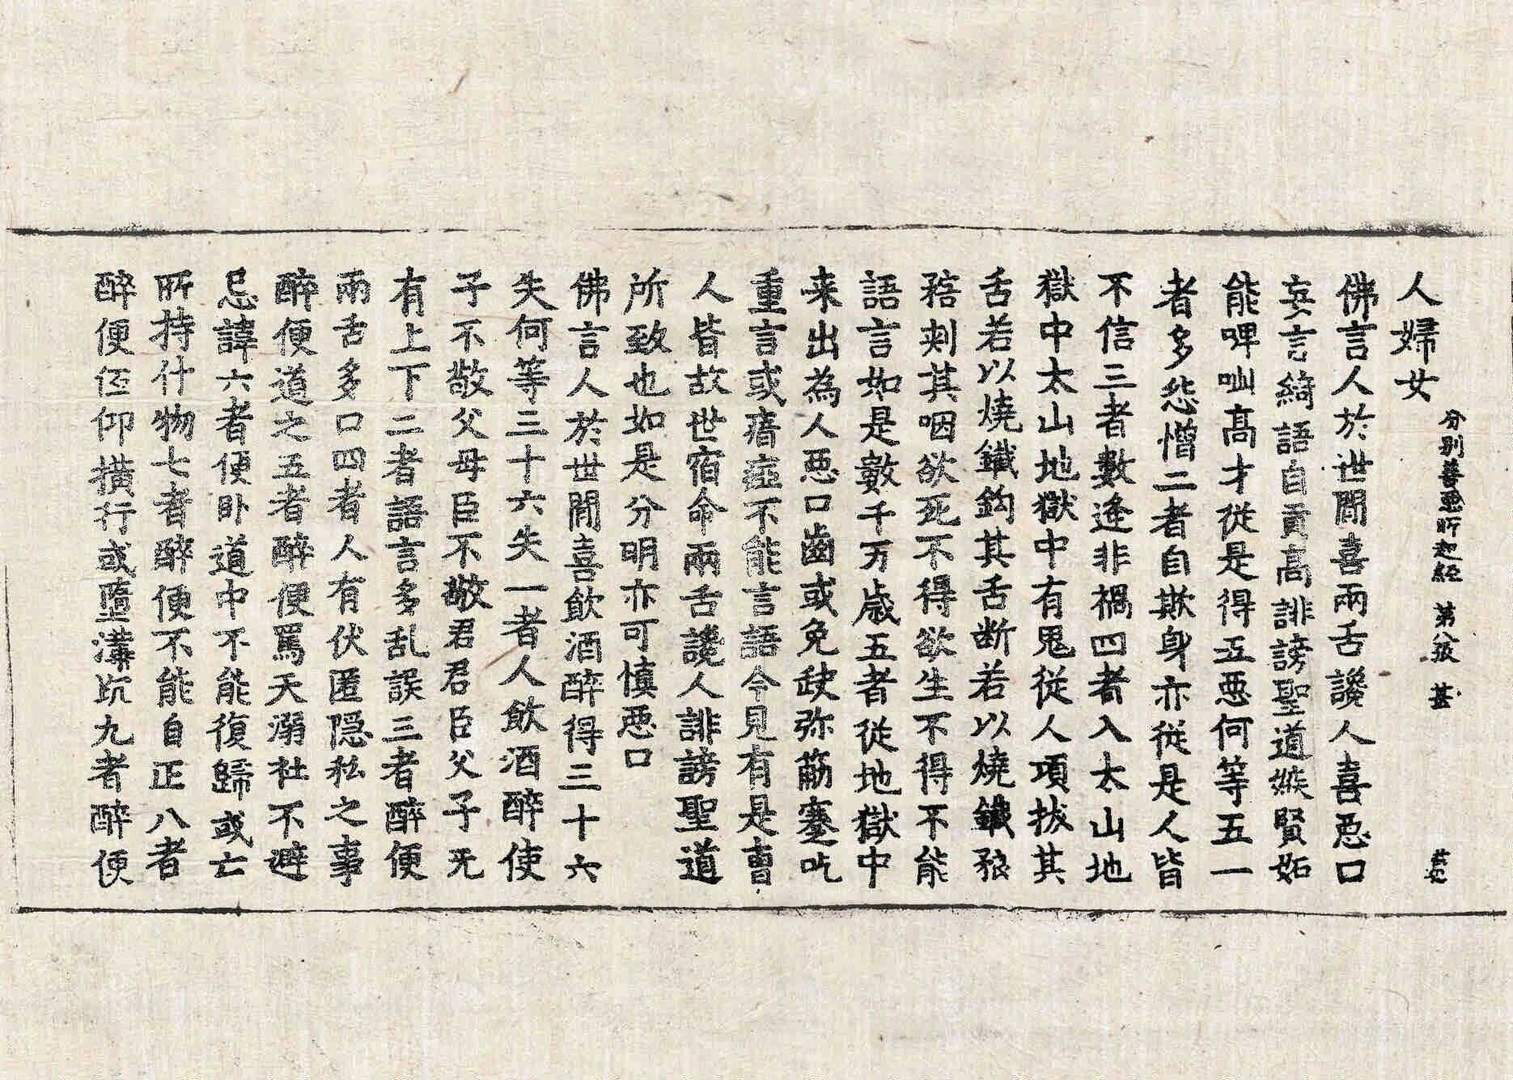 人婦女
分別善惡所起経 第八張 甚
佛言人於世間喜兩舌讒人喜惡口
妄言綺語自貢髙誹謗聖道嫉賢妬
能啤呲髙才從是得五惡何等五一
者多怨憎二者自欺身亦從是人皆
不信三者數逢非禍四者入太山地
獄中太山地獄中有鬼從人項拔其
舌若以燒鐵鈎其舌断若以燒鐵狼
其咽欲死不得欲生不得不能
語言如是數千万歳五者従地獄中
来出為人惡口齒或免缺弥筋蹇吃
重言或瘖瘂不能言語今見有是曹
人皆故世宿命兩舌讒人誹謗聖道
所致也如是分明亦可慎惡口
佛言人於世間喜飲酒醉得三十六
失何等三十六失一者人飲酒醉使
子不敬父母臣不敬君君臣父子无
有上下二者語言多乱誤三者醉便
兩舌多口四者人有伏匿隠私之事
醉便道之五者醉便罵天溺社不避
忌諱六者便卧道中不能復歸或亡
所持什物七者醉便不能自正八者
醉便仾仰橫行或墮溝坑九者醉便